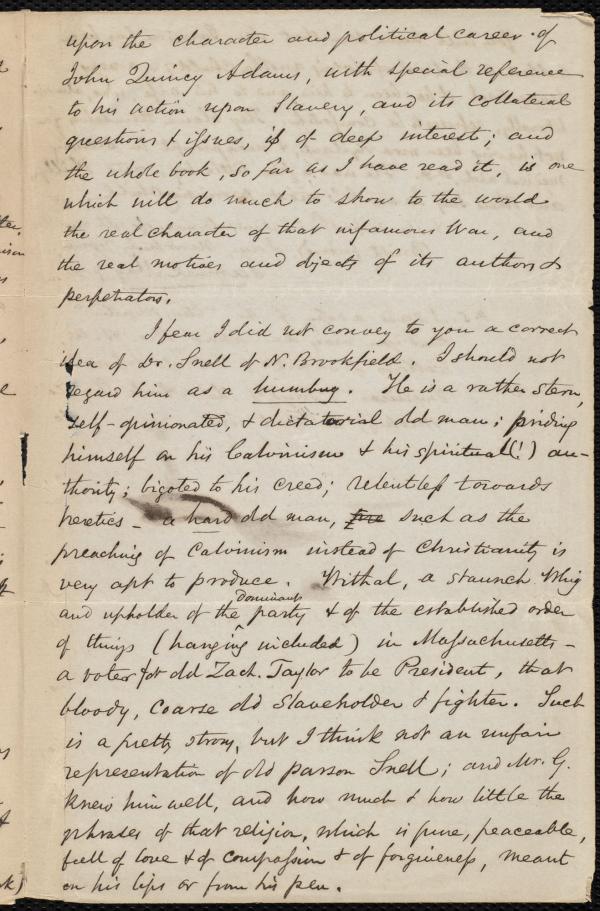 upon the character and political career of
John Quincy Adams, with special reference
to his action upon Slavery, and its collateral
questions & issues, is of deep interest; and
the whole book, so far as I have read it, is one
which will do much to show to the world
the real character of that infamous War, and
the real motives and objects of its authors &
perpetrators.
I fear I did not convey to you a correct
idea of Dr. Snell of N. Brookfield. I should not
regard him as a humbug. He is a rather stern,
self-opinionated, & dictatorial old man; priding
himself on his Calvinism & his spiritual (!) au-
thority; bigoted to his creed; relentless towards
heretics - a hard old man, such as the
preaching of Calvinism instead of Christianity is
very apt to produce. Withal, a staunch Whig
and upholder of the dominant party & of the established order
of things (hanging included) in Massachusetts -
a voter for old Zach. Taylor to be President, that
bloody, coarse old Slaveholder & fighter. Such
is a pretty strong, but I think not an unfair
representation of old parson Snell; and Mr. G.
knew him well, and how much & how little the
phrases of that religion, which is pure, peaceable,
full of love & of compassion & of forgiveness, meant
on his lips or from his pen.